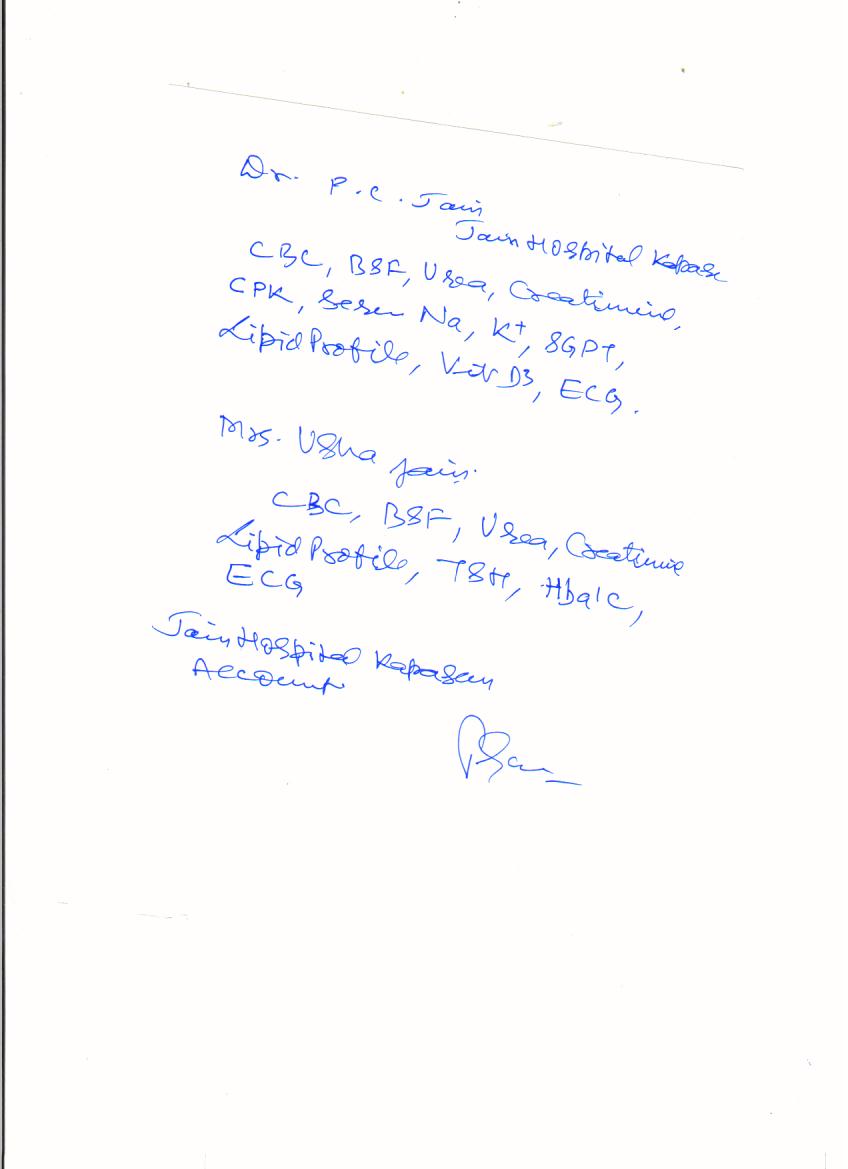 Dr. P.C. Jain
Jain Hospital Kapasan
CBC, BSF, Urea, Creatinine,
CPK, Serum Na, K+, SGPT,
Lipid Profile, Vit D3, ECG.
Mrs. Usha Jain.
CBC, BSF, Urea, Creatinine
Lipid Profile, TSH, Hba1C,
ECG
Jain Hospital Kapasan
Account